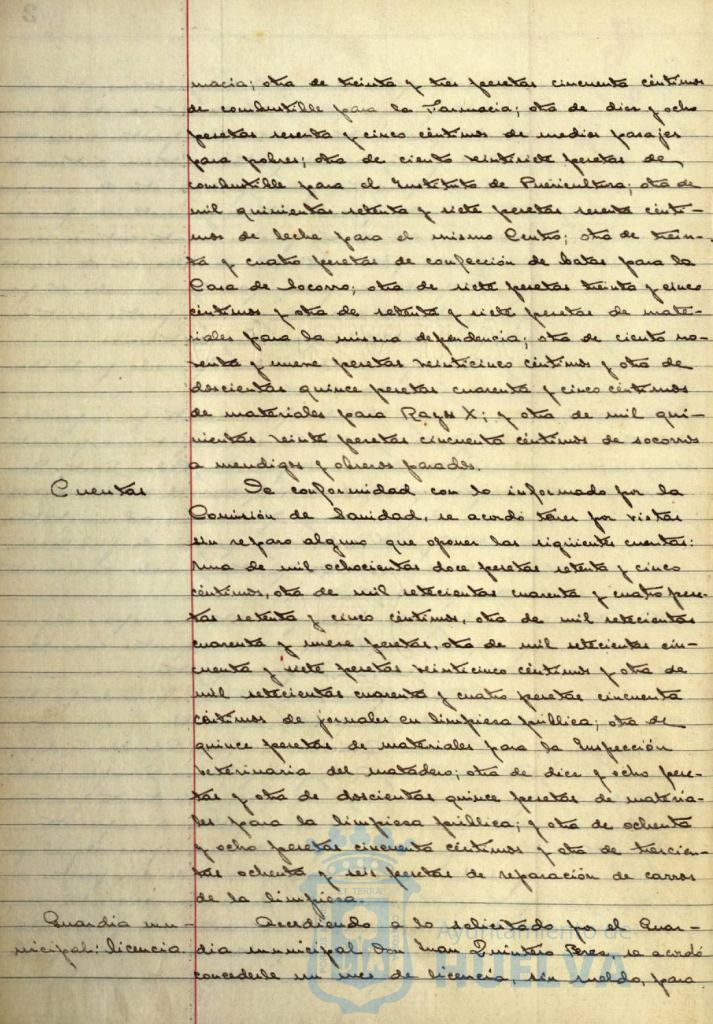 macia; otra de treinta y tres pesetas cincuenta céntimos
de combustible para la Farmacia; otra de diez y ocho
pesetas sesenta y cinco céntimos de medios pasajes
para pobres; otra de ciento veintisiete pesetas de
combustible para el Instituto de Puericultura; otra de
mil quinientas setenta y siete pesetas sesenta cénti-
mos de leche para el mismo Centro; otra de trein-
ta y cuatro pesetas de confección de batas para la
Casa de Socorro; otra de siete pesetas treinta y cinco
céntimos y otra de setenta y siete pesetas de mate-
riales para la misma dependencia; otra de ciento no-
venta y nueve pesetas veinticinco céntimos y otra de
doscientas quince pesetas cuarenta y cinco céntimos
de materiales para Rayos X; y otra de mil qui-
nientas veinte pesetas cincuenta céntimos de socorros
a mendigos y obreros parados.
Cuentas De conformidad con lo informado por la
Comisión de Sanidad, se acordó tener por vistas
sin reparo alguno que oponer las siguientes cuentas:
una de mil ochocientas doce pesetas setenta y cinco
céntimos, otra de mil setecientas cuarenta y cuatro pese-
tas setenta y cinco céntimos, otra de mil setecientas
cuarenta y nueve pesetas, otra de mil setecientas cin-
cuenta y siete pesetas veinticinco céntimos y otra de
mil setecientas cuarenta y cuatro pesetas cincuenta
céntimos de jornales en limpieza pública; otra de
quince pesetas de materiales para la Inspección
veterinaria del matadero; otra de diez y ocho pese-
tas y otra de doscientas quince pesetas de materia-
les para la limpieza pública; y otra de ochenta
y ocho pesetas cincuenta céntimos y otra de trescien-
tas ochenta y seis pesetas de reparación de carros
de la limpieza.
Guardia mu- Accediendo a lo solicitado por el Guar-
nicipal: licencia dia municipal Don Juan Quintero Perez, se acordó
concederle un mes de licencia, sin sueldo, para